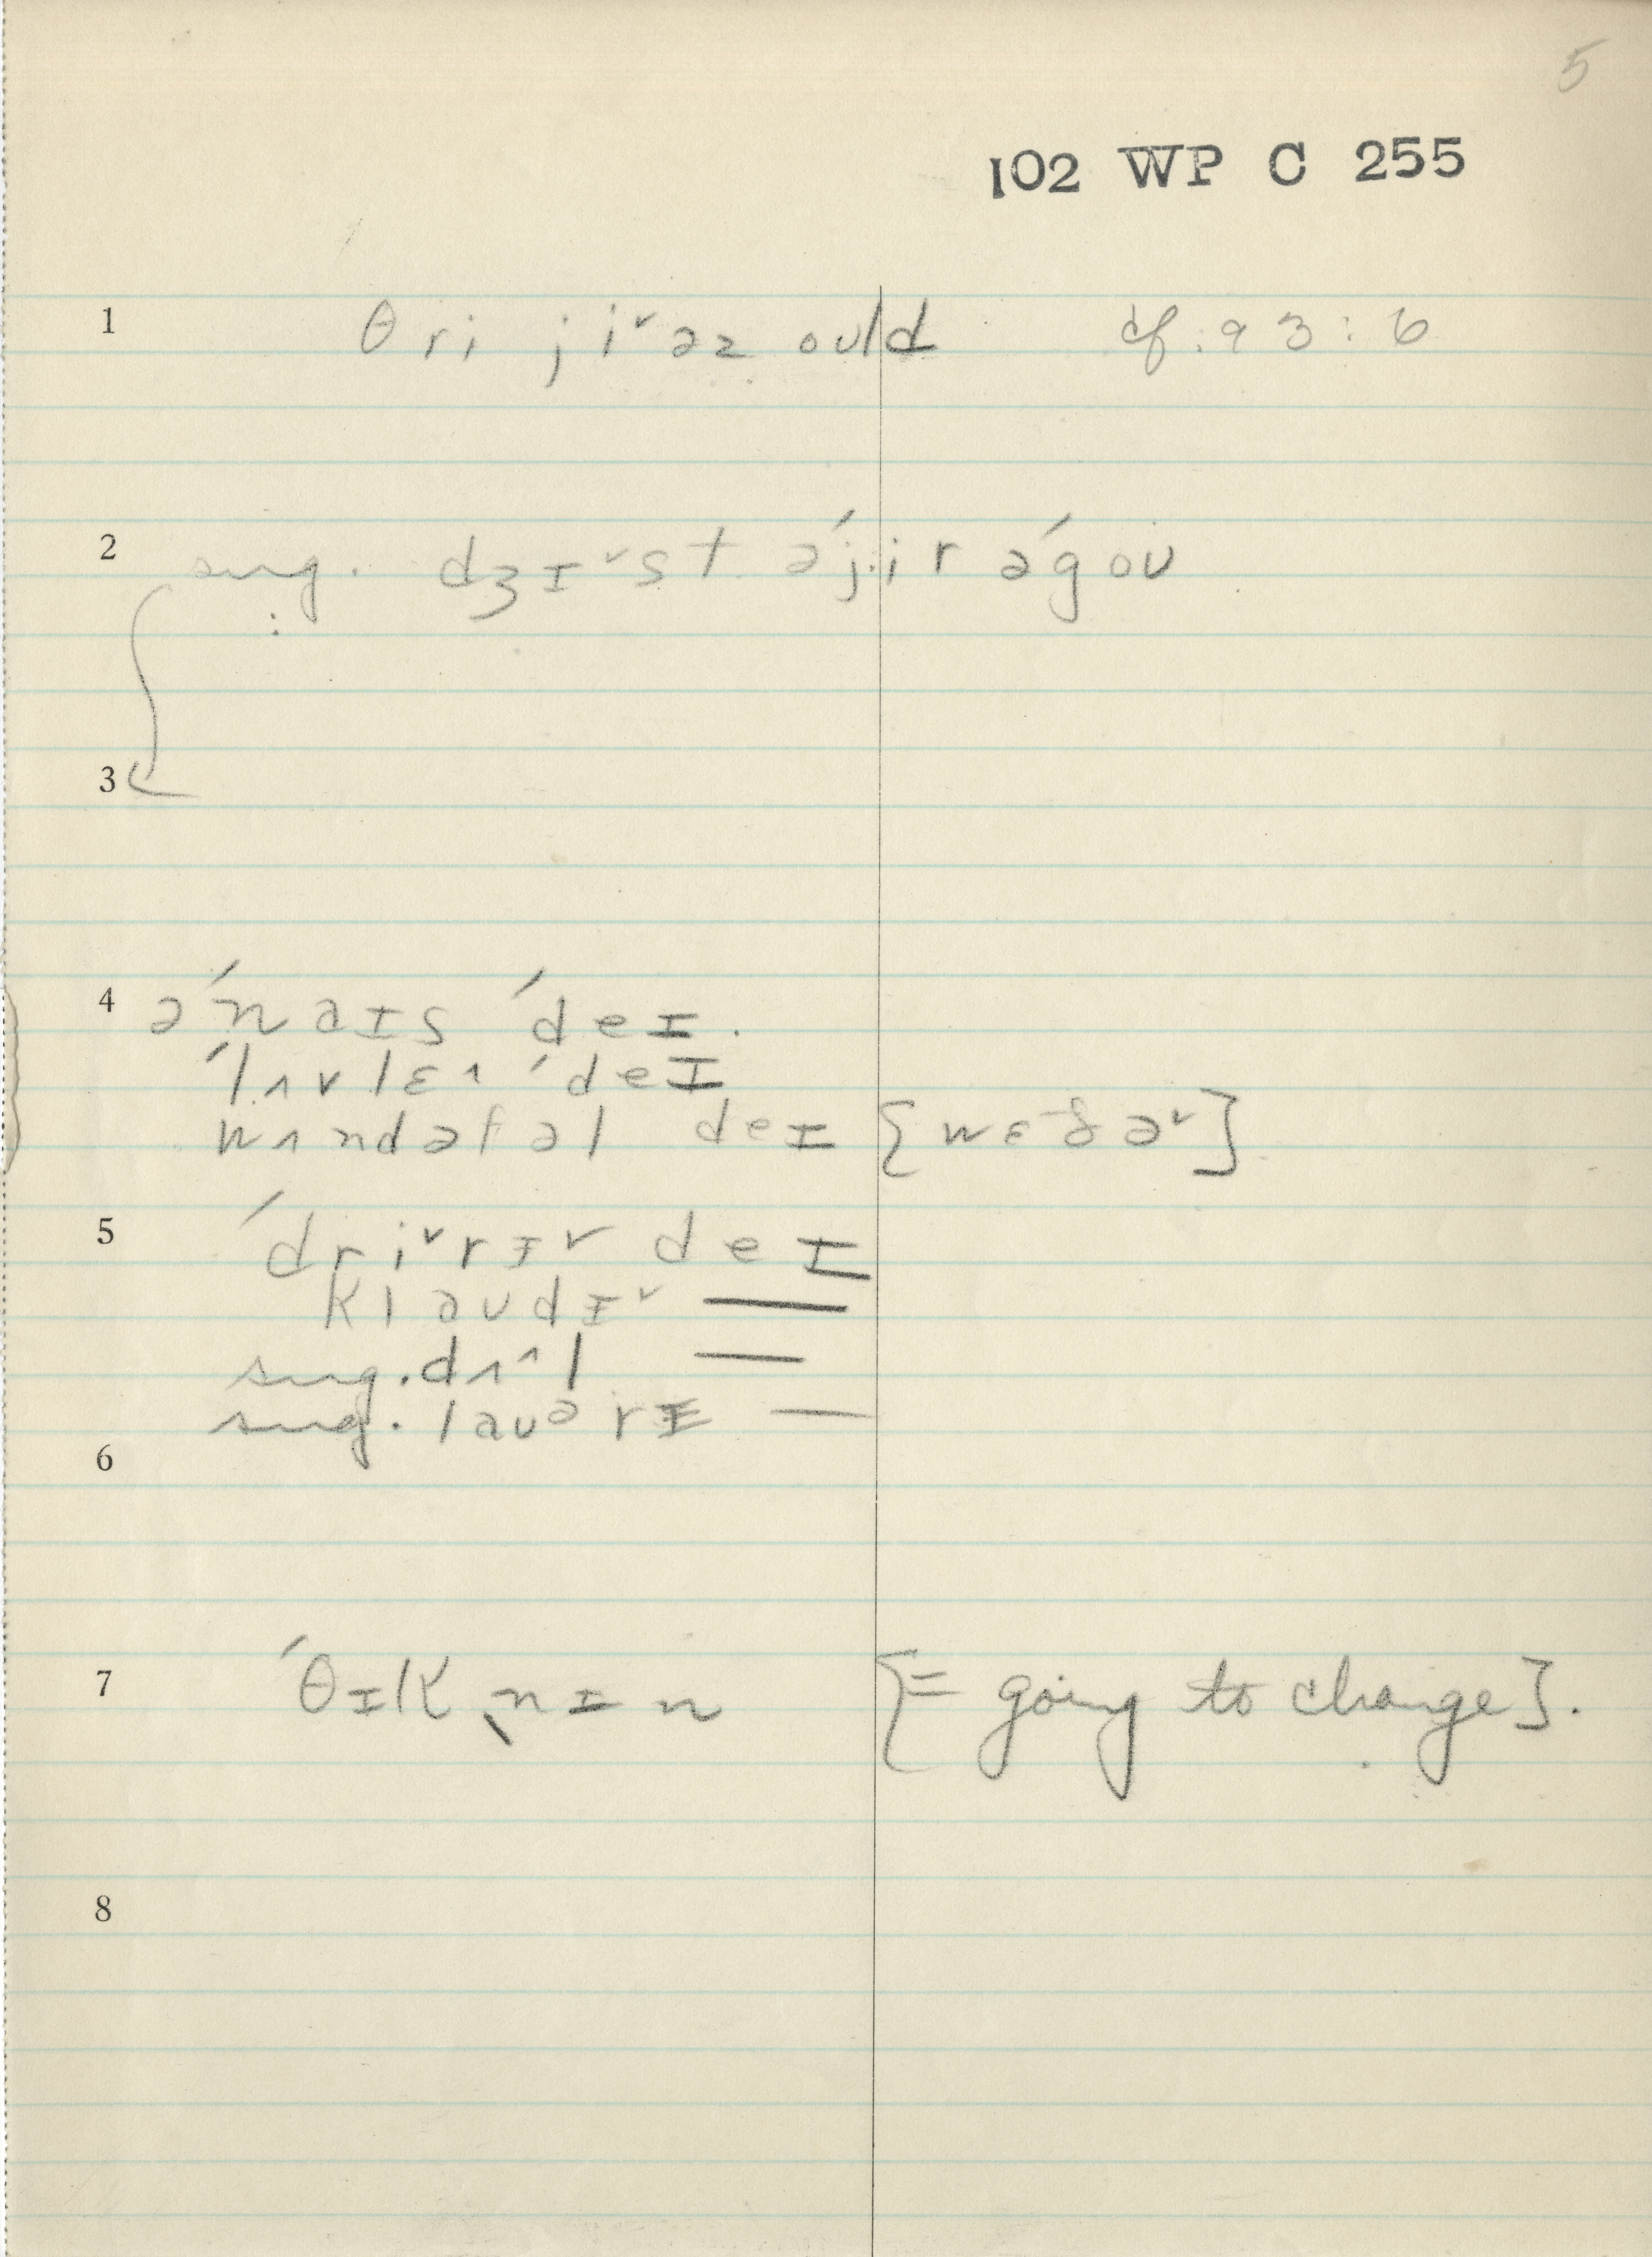 5
102 WP C 255
1 θri ji˅əz oʊld cf. 93:6
2 sug. dʒɪ˅st ə´jir ə´goʊ
3
4 ə´naɪs ´deɪ.
´lʌvlɛ^ ´deɪ
wʌndəfəl deɪ [wɛðə˅]
5 ´dri˅rɪ˅ deɪ
klaʊdɪ˅ —
sug. dʌ^l —
sug. laʊərɪ —
6
7 ´θɪkˌnɪn [= going to change].
8